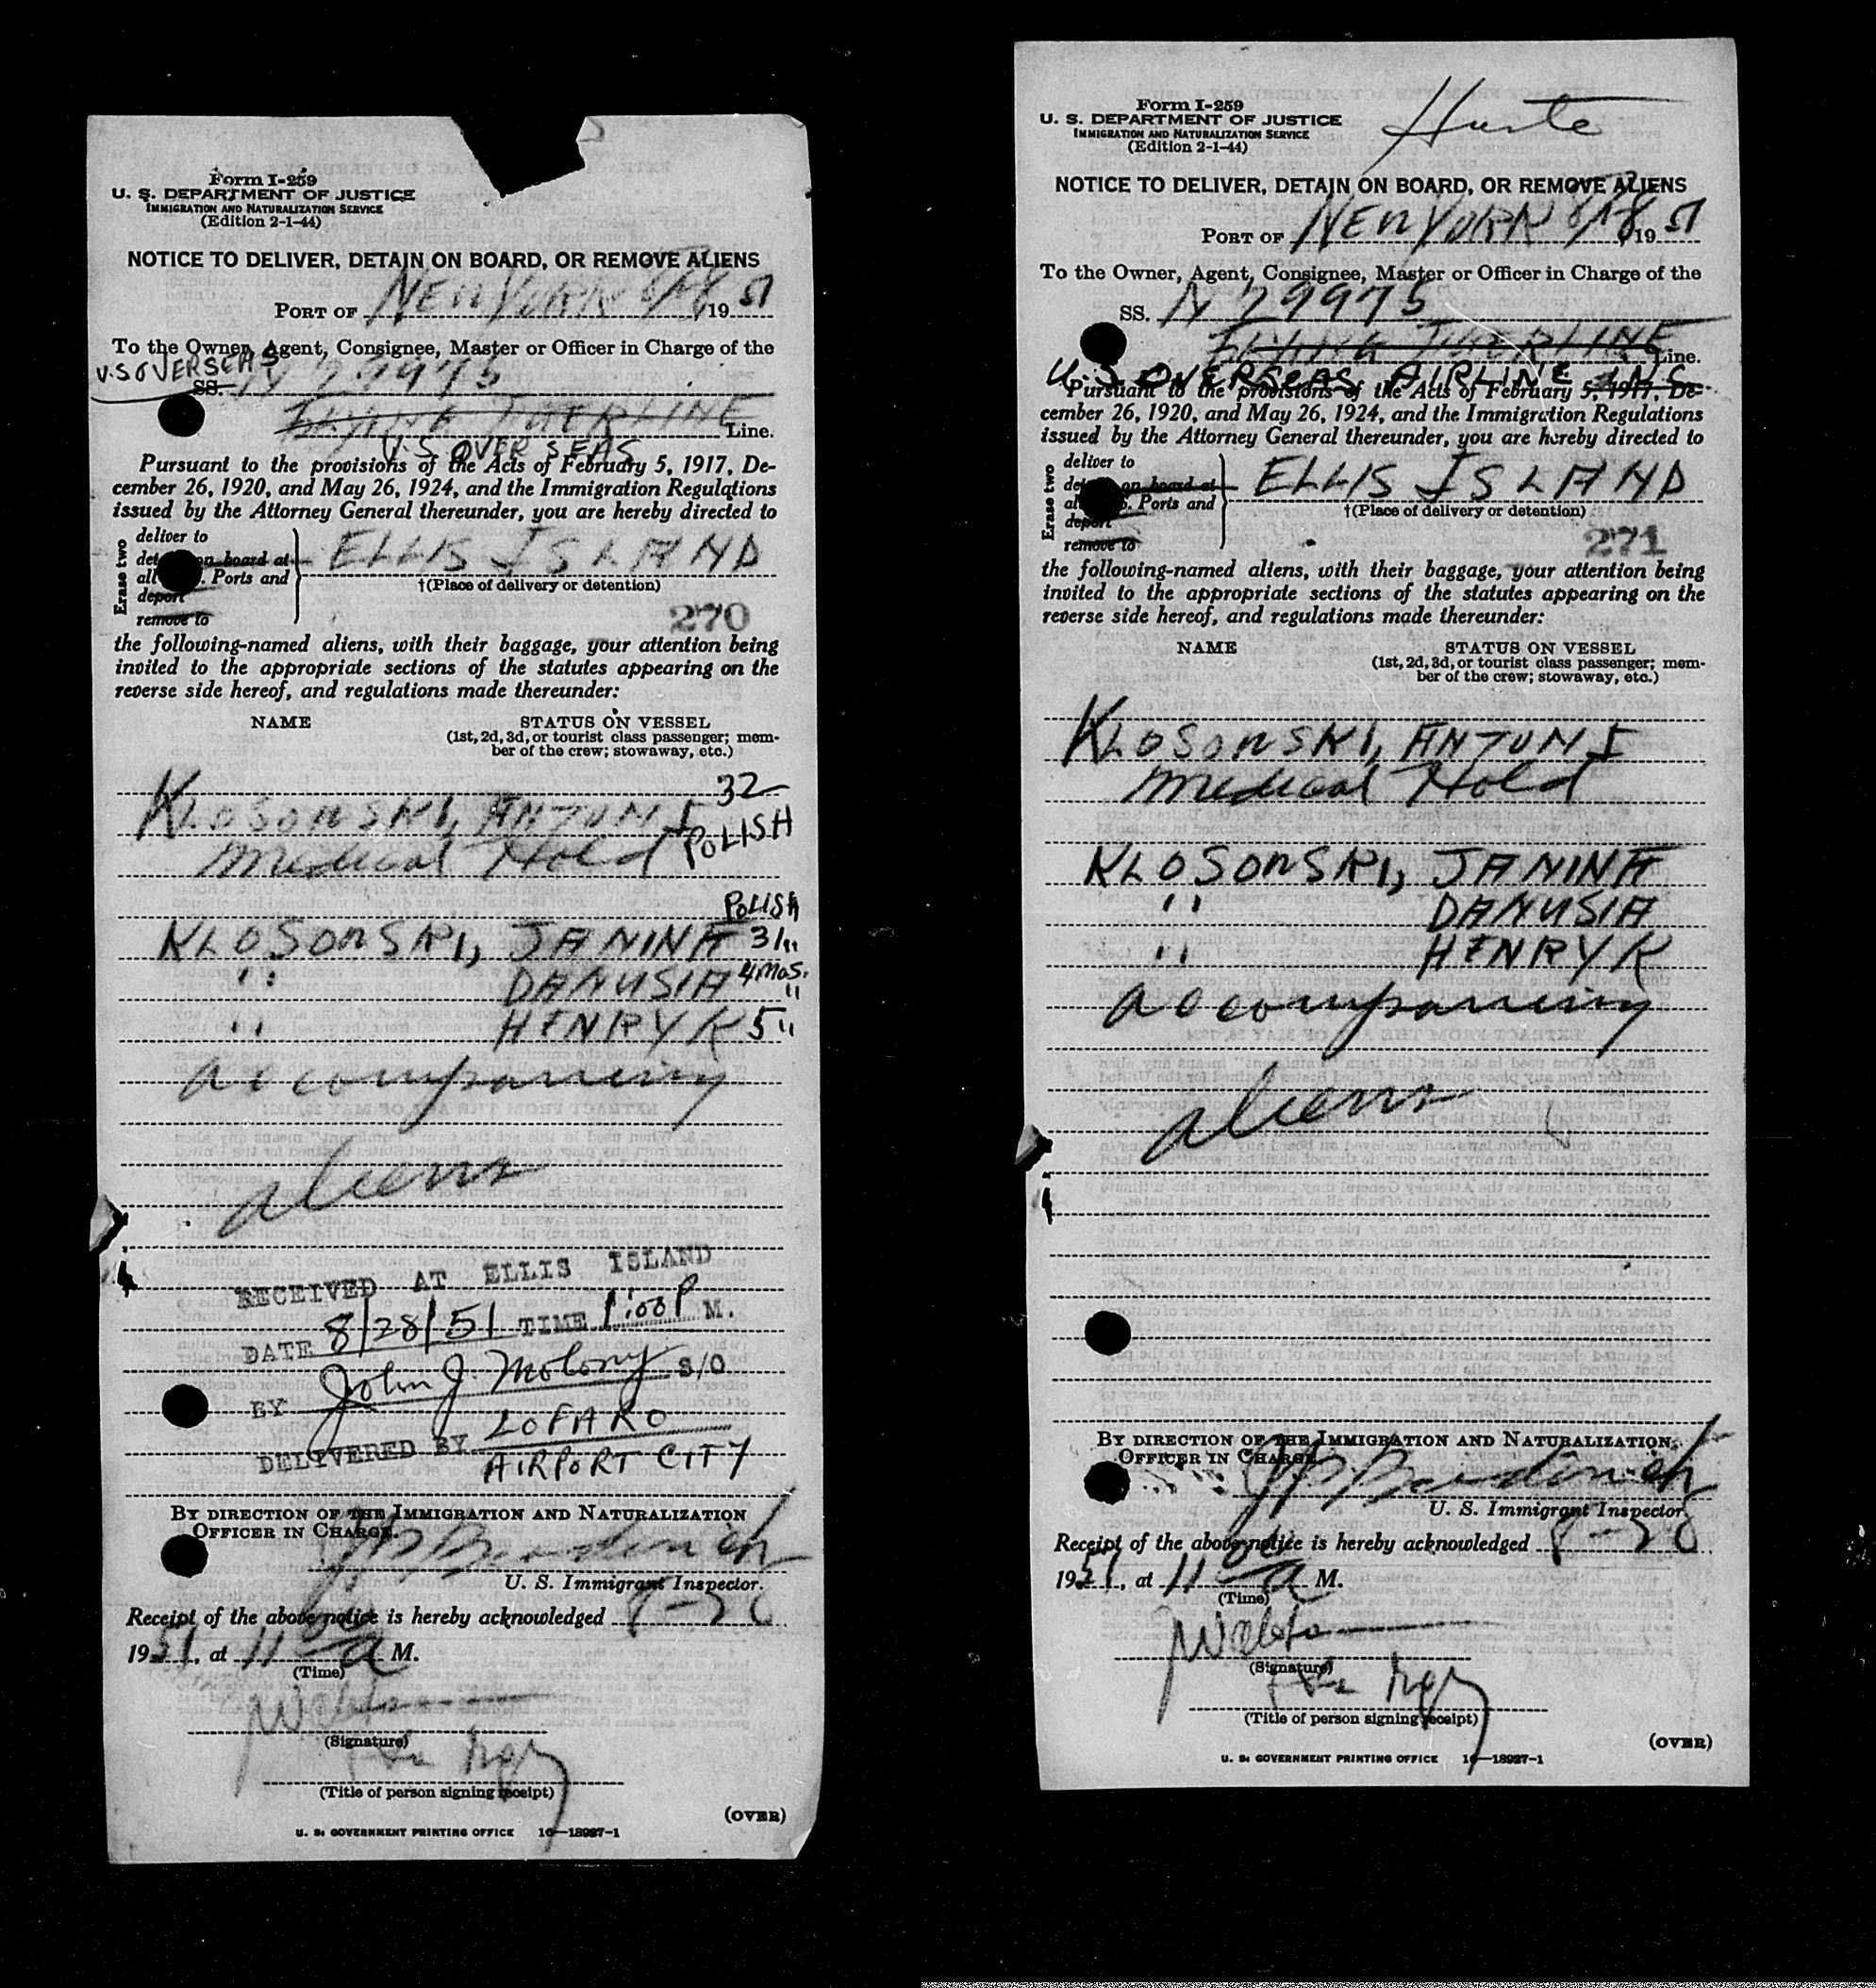 Form I-259
U. S. DEPARTMENT OF JUSTICE
IMMIGRATION AND NATURALIZATION SERVICE
(Edition 2-1-44)
NOTICE TO DELIVER, DETAIN ON BOARD, OR REMOVE ALIENS
PORT OF NEW YORK 8/28 1951
To the Owner, Agent, Consignee, Master or Officer in Charge of the
U.S OVERSEAS
SS. N 79975
FLYING TIGER LINE Line.
U.S OVER SEAS
Pursuant to the provisions of the Acts of February 5, 1917, De-
cember 26, 1920, and May 26, 1924, and the Immigration Regulations
issued by the Attorney General thereunder, you are hereby directed to
Erase two
deliver to
on board at
all Ports and
deport
remove to
ELLIS ISLAND
†(Place of delivery or detention)
270
the following-named aliens, with their baggage, your attention being
invited to the appropriate sections of the statutes appearing on the
reverse side hereof, and regulations made thereunder:
NAME STATUS ON VESSEL
(1st, 2d, 3d, or tourist class passenger; mem-
ber of the crew; stowaway, etc.)
KLOSOWSKI, ANTONI 32
Medical Hold POLISH
POLISH
KLOSOWSKI, JANINA 31 "
" DANUSIA 4 MOS. "
" HENRYK 5 "
accompanying
aliens
RECEIVED AT ELLIS ISLAND
DATE 8/28/51 TIME 1:00 P M.
BY John J. Molony S/O
DELIVERED BY LOFARO
AIRPORT CITY
BY DIRECTION OF THE IMMIGRATION AND NATURALIZATION
OFFICER IN CHARGE.
U. S. Immigrant Inspector.
Receipt of the above notice is hereby acknowledged 8-28
1951, at 11 00 a M.
(Time)
(Signature)
(Title of person signing receipt)
(OVER)
U. S. GOVERNMENT PRINTING OFFICE 16—18927-1
Form I-259
U. S. DEPARTMENT OF JUSTICE
IMMIGRATION AND NATURALIZATION SERVICE
(Edition 2-1-44)
NOTICE TO DELIVER, DETAIN ON BOARD, OR REMOVE ALIENS
PORT OF NEW YORK 8/28 1951
To the Owner, Agent, Consignee, Master or Officer in Charge of the
SS. N 79975
FLYING TIGER LINE Line.
U.S OVERSEAS AIRLINE INC.
Pursuant to the provisions of the Acts of February 5, 1917, De-
cember 26, 1920, and May 26, 1924, and the Immigration Regulations
issued by the Attorney General thereunder, you are hereby directed to
Erase two
deliver to
on board at
Ports and
deport
remove to
ELLIS ISLAND
†(Place of delivery or detention)
271
the following-named aliens, with their baggage, your attention being
invited to the appropriate sections of the statutes appearing on the
reverse side hereof, and regulations made thereunder:
NAME STATUS ON VESSEL
(1st, 2d, 3d, or tourist class passenger; mem-
ber of the crew; stowaway, etc.)
KLOSOWSKI, ANTONI
Medical Hold
KLOSOWSKI, JANINA
" DANUSIA
" HENRYK
accompanying
aliens
BY DIRECTION OF THE IMMIGRATION AND NATURALIZATION
OFFICER IN CHARGE.
U. S. Immigrant Inspector.
Receipt of the above notice is hereby acknowledged 8-28
1951, at 11 00 a M.
(Time)
(Signature)
(Title of person signing receipt)
(OVER)
U. S. GOVERNMENT PRINTING OFFICE 16—18927-1